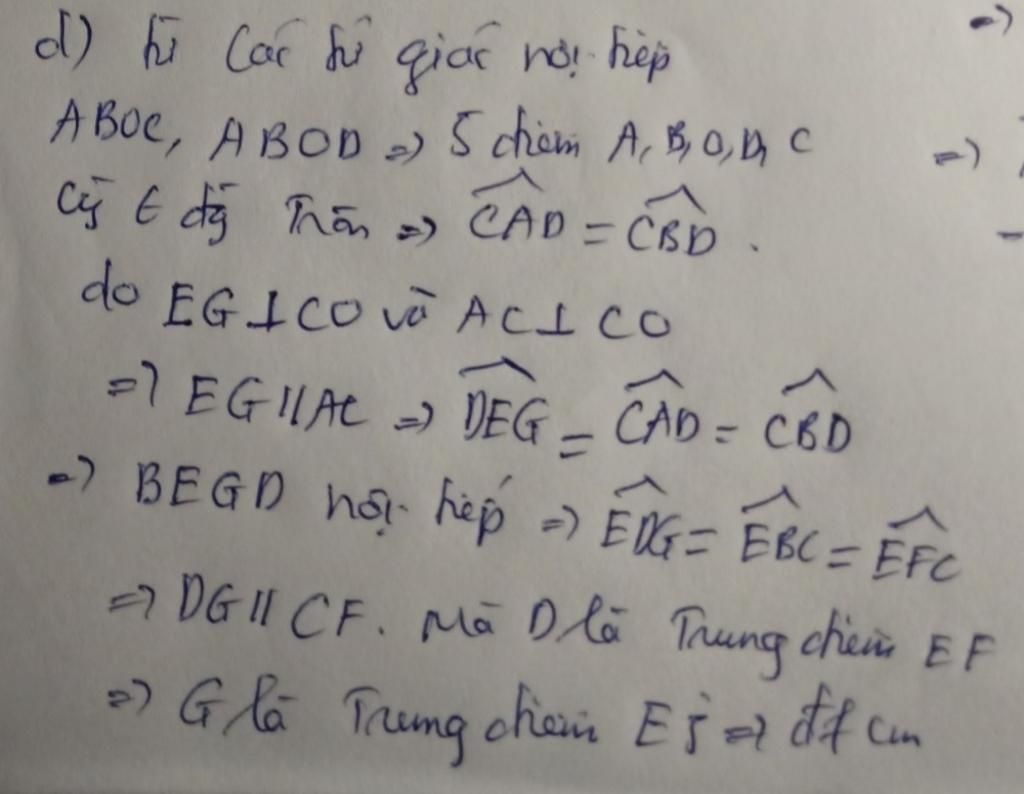 d) từ các tứ giác nội tiếp =>
ABOC, ABOD => 5 điểm A, B, O, D, C =>
cg ∈ đg Tròn => CAD = CBD. -
do EG ⊥ CO và AC ⊥ CO
=> EG // AC => DEG = CAD = CBD
=> BEGD nội tiếp => EDG = EBC = EFC
=> DG // CF. Mà D là Trung điểm EF
=> G là Trung điểm Ej => đf cm